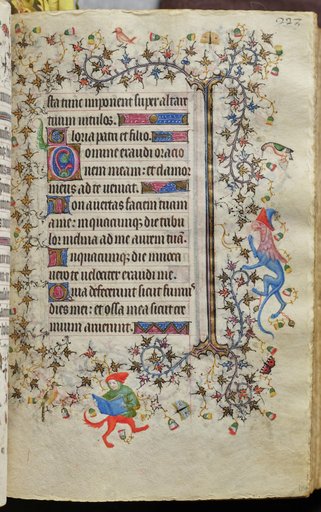 223
sta tunc imponent super altare
tuum vitulos.
Gloria patri et filio.
Domine exaudi oracio
nem meam: et clamor
meus ad te veniat.
Non avertas faciem tuam
a me: in quacumque die tribu
lor inclina ad me aurem tuã.
In quacumque die invoca
vero te velociter exaudi me.
Quia defecerunt sicut fumus
dies mei: et ossa mea sicut cre
mium aruerunt.